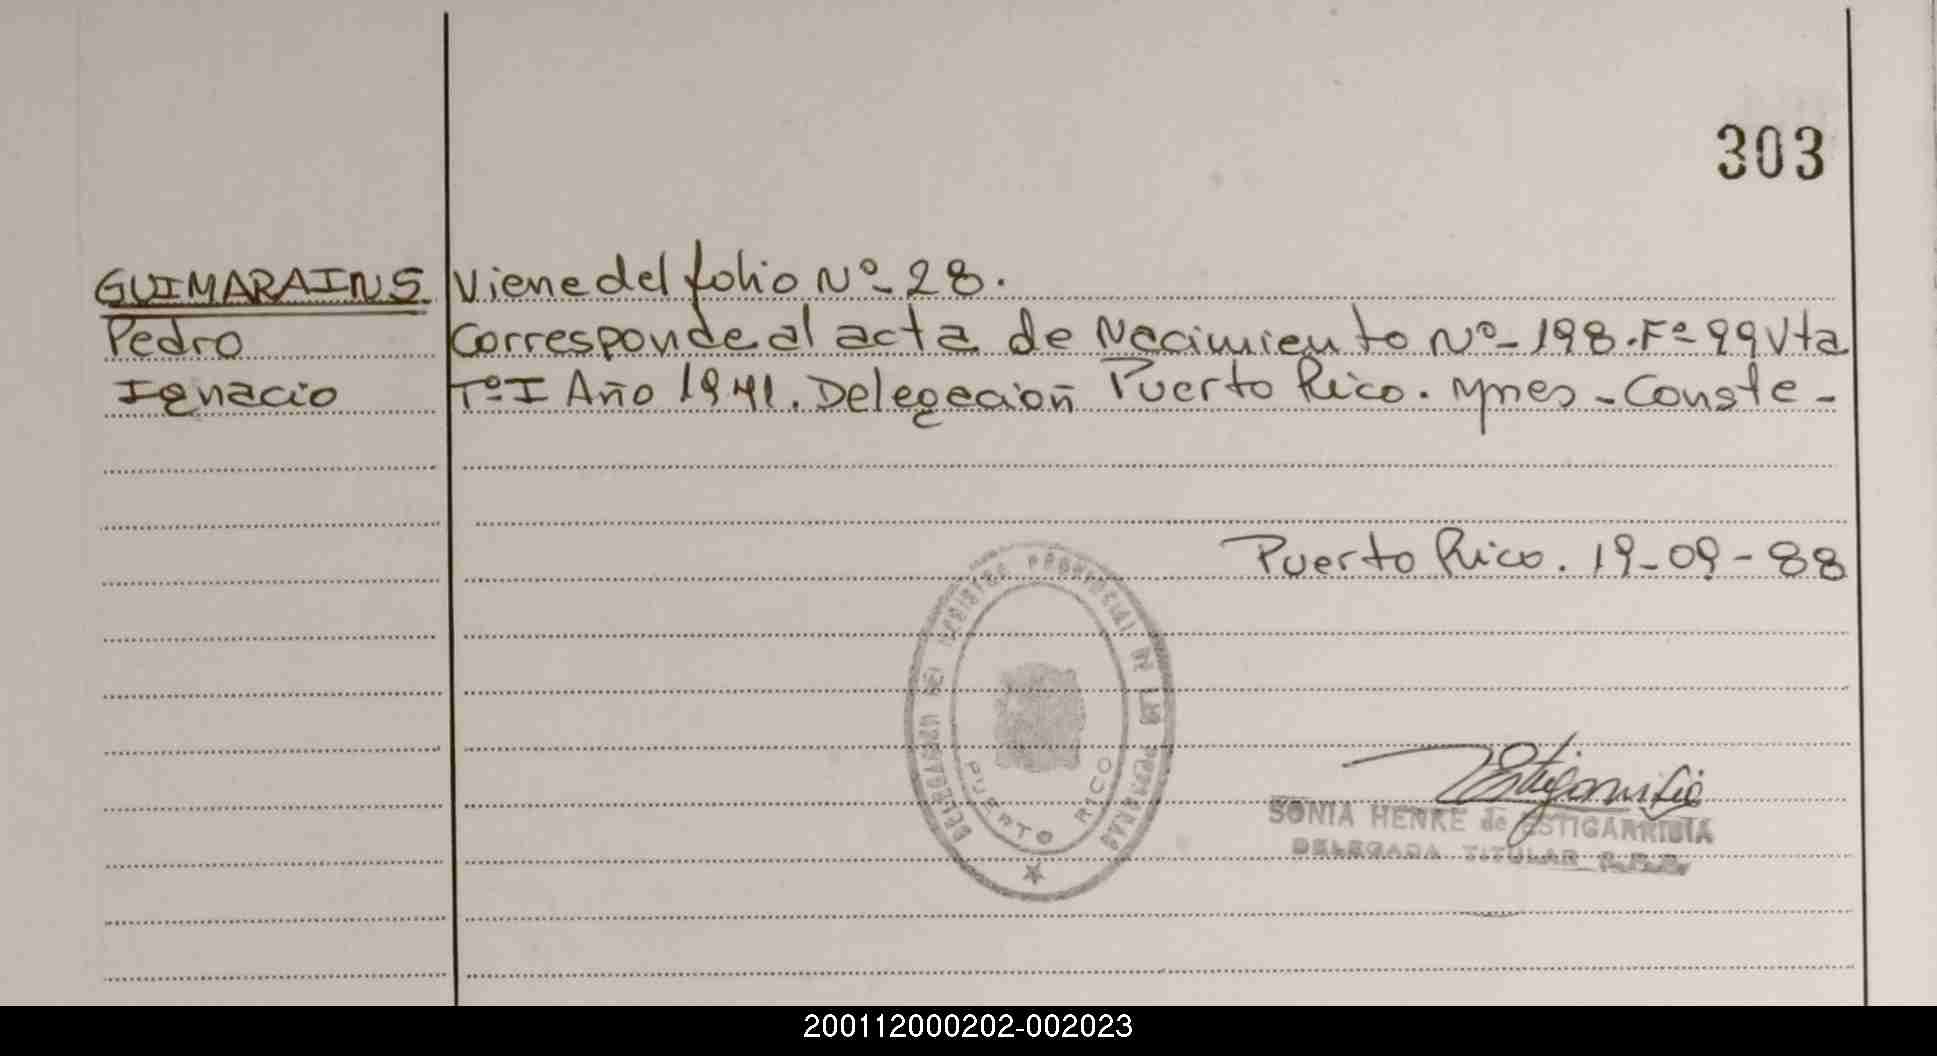 303
GUIMARAINS Viene del folio Nº 28.
Pedro Corresponde al acta de Nacimiento Nº 198. Fº 99 Vta
Ignacio Tº I Año 1941. Delegación Puerto Rico. Mnes - Conste -
Puerto Rico. 19-09-88
DELEGACION DEL REGISTRO PROVINCIAL DE LAS PERSONAS
PUERTO RICO
SONIA HENKE de ESTIGARRIBIA
DELEGADA TITULAR R.P.P.
200112000202-002023